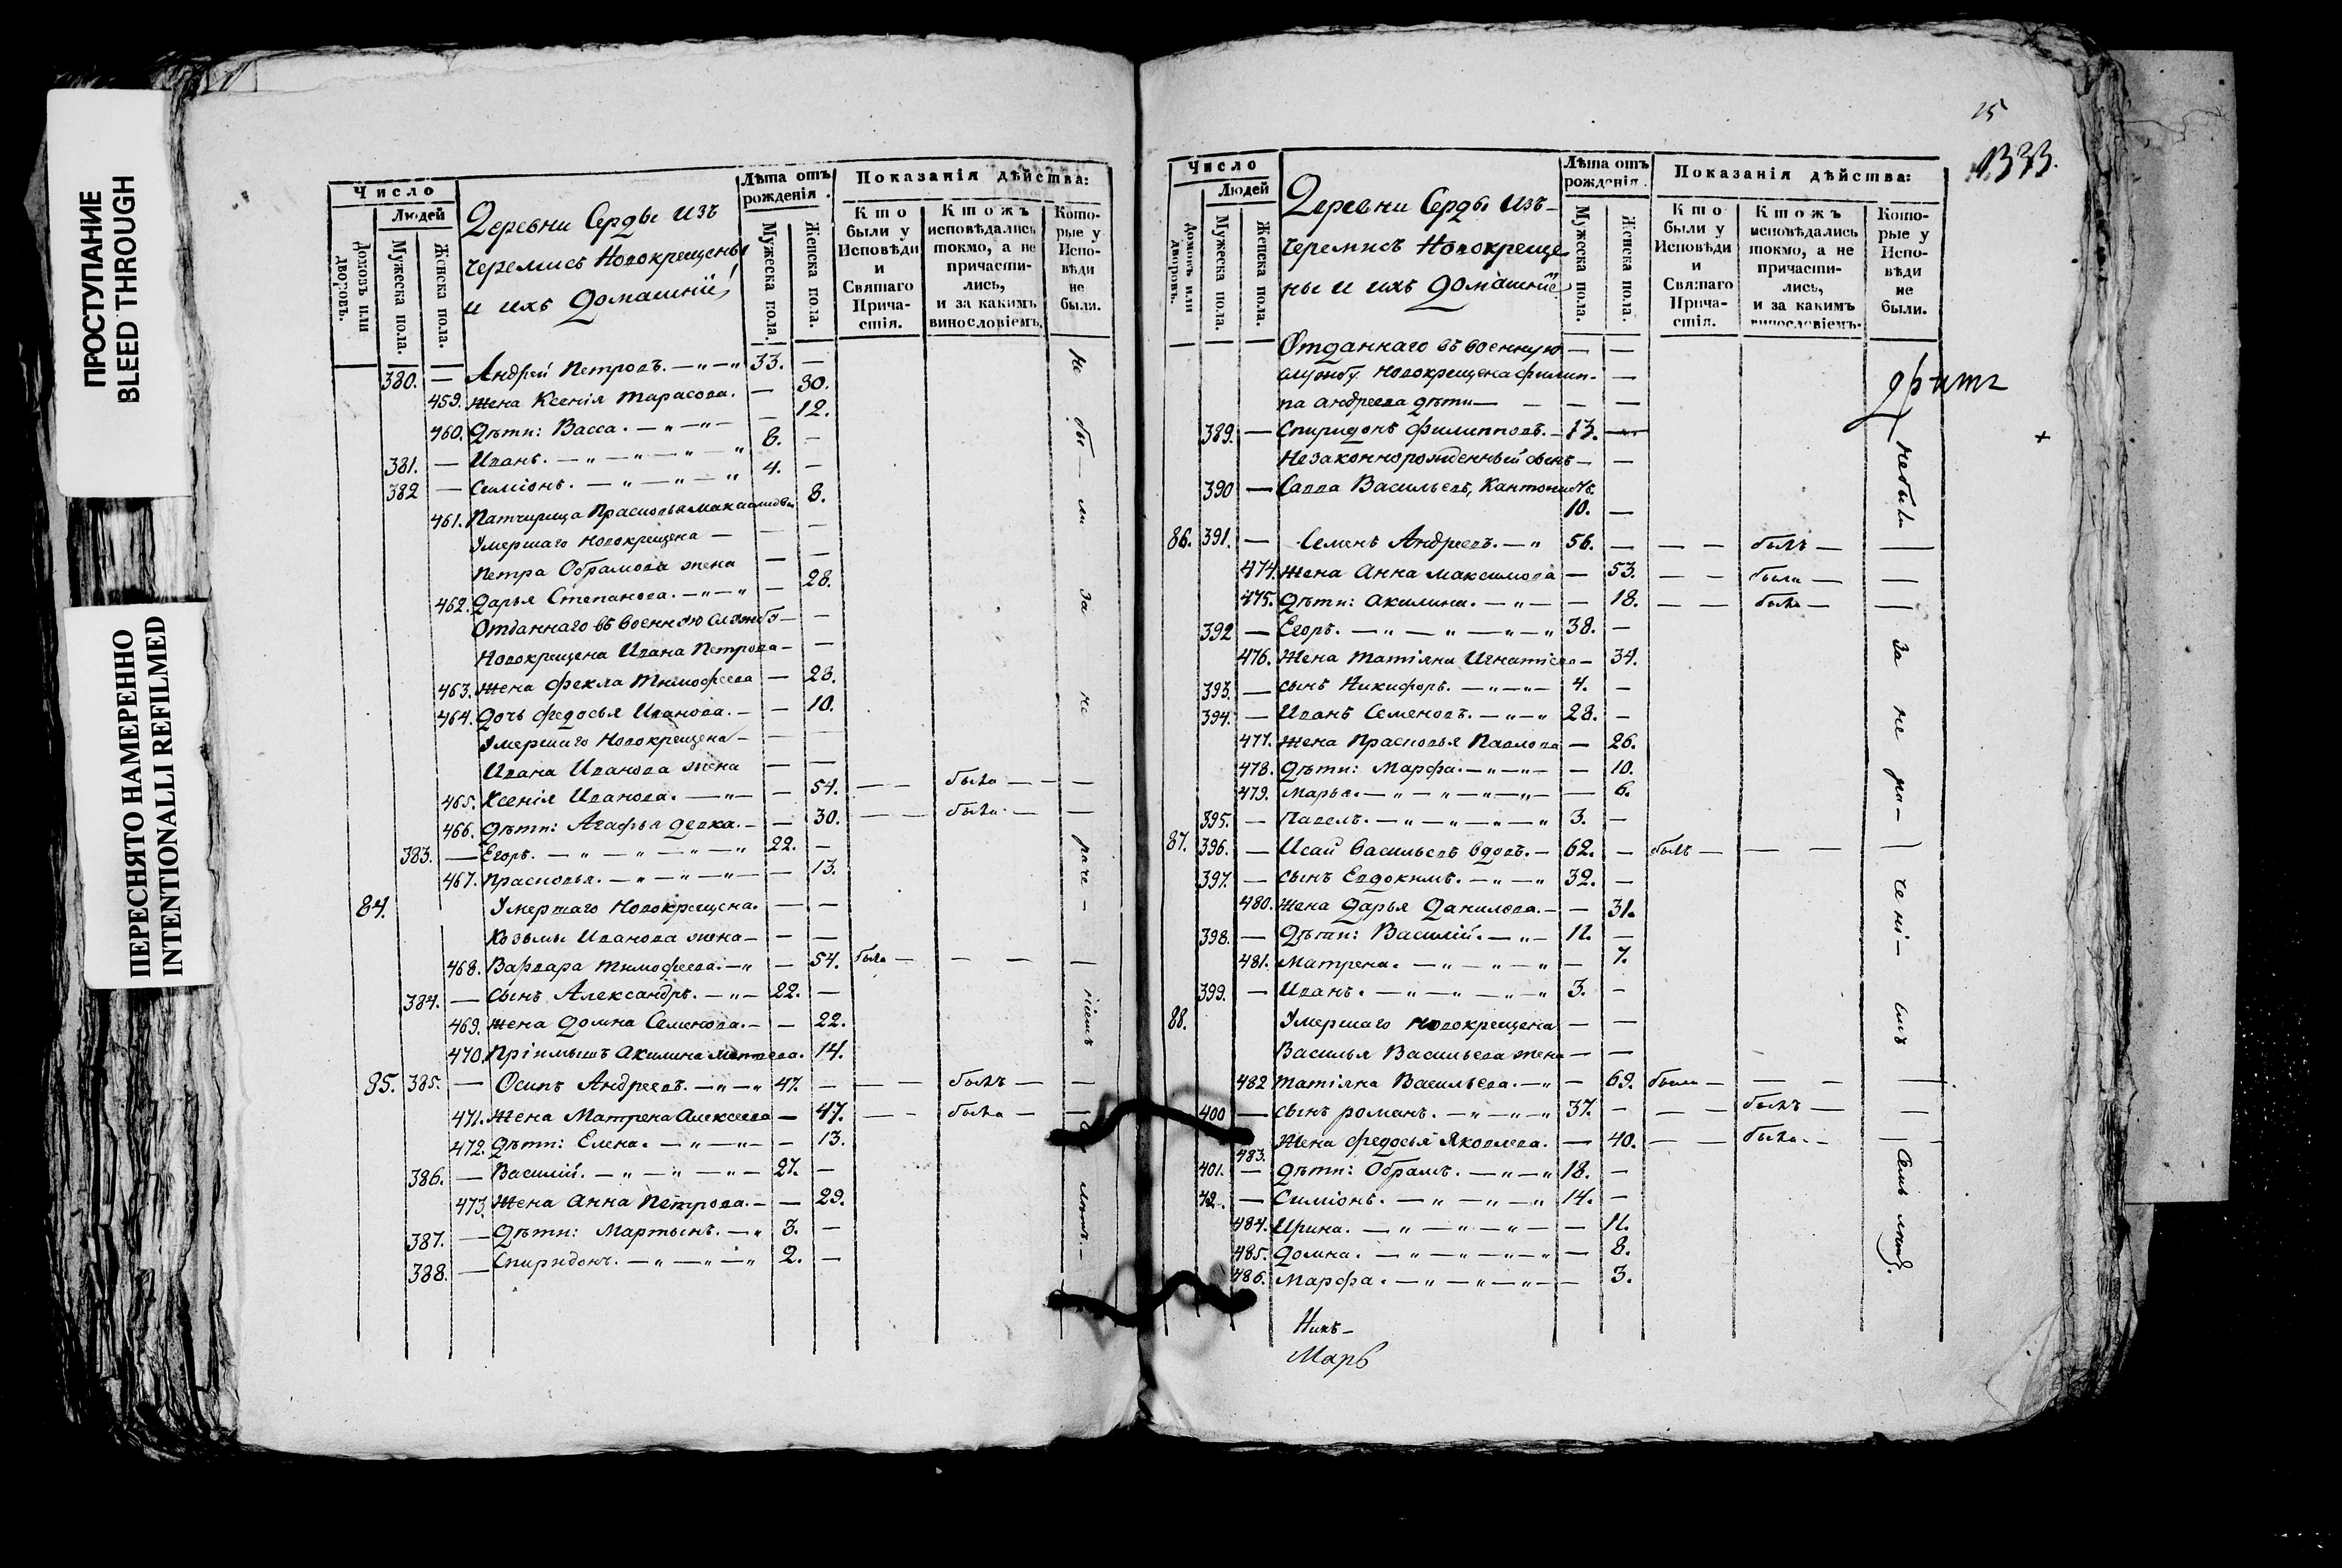 ПРОСТУПАНИЕ
BLEED THROUGH
ПЕРЕСНЯТО НАМЕРЕННО
INTENTIONALLI REFILMED
Число
Людей
Домовъ или дворовъ.
Мужеска пола.
Женска пола.
Деревни Серды изъ
черемисъ Новокрещены
и ихъ домашніи
Лѣта отъ рожденія.
Мужеска пола.
Женска пола.
Показанія дѣйства:
Кто были у Исповѣди и Святаго Причастія.
Ктожъ исповѣдались токмо, а не причастились, и за какимъ винословіемъ.
Которые у Исповѣди не были.
380. — Андрей Петровъ. — „ — „ 33. —
459. Жена Ксенія Тарасова. — 30.
460. Дѣти: Васса. — „ — „ — — 12.
381. — Иванъ. — „ — „ — „ — „ 8. —
382 — Симіонъ. — „ — „ — „ 4. —
461. Патчирица Прасковья 8.
Умершаго Новокрещена — — —
Петра Обрамова жена — —
462. Дарья Степанова. — „ — „ — 28.
Отданнаго въ военную службу — —
Новокрещена Ивана Петрова — — —
463. Жена Фекла Тимофеева — 28.
464. Дочь Федосья Иванова. — — 10.
Умершаго Новокрещена — — —
Ивана Иванова жена — —
465. Ксенія Иванова. — „ — — 54. — — была — —
466. Дѣти: Агафья девка. — — 30. — — была — —
383. — Егоръ. — „ — „ — „ — „ 22. —
467. Прасковья. — „ — „ — „ — — 13.
84. Умершаго Новокрещена. — —
Козьмы Иванова жена — — —
468. Варвара Тимофеева. — „ — 54. была — — — —
384. — Сынъ Александръ. — „ — 22. —
469. Жена Домна Семенова. — — 22.
470. Пріимышъ Акилина 14.
85. 385. — Осипъ Андреевъ. — „ — „ 47. — — — былъ — —
471. Жена Матрена Алексеева — 47. — — была — —
472. Дѣти: Елена. — „ — „ — — 13.
386. — Василій. — „ — „ — „ — 27. —
473. Жена Анна Петрова. — — 29.
387. — Дѣти: Мартынъ. — „ 3. —
388. — Спиридонъ. — „ — „ — „ 2. —
Не бы — ли за не раче — ніемъ
15
1333.
Число
Людей
Домовъ или дворовъ.
Мужеска пола.
Женска пола.
Деревни Серды изъ
черемисъ Новокреще
ны и ихъ домашніи
Лѣта отъ рожденія.
Мужеска пола.
Женска пола.
Показанія дѣйства:
Кто были у Исповѣди и Святаго Причастія.
Ктожъ исповѣдались токмо, а не причастились, и за какимъ винословіемъ.
Которые у Исповѣди не были.
Отданнаго въ военную — —
службу Новокрещена Филип- —
па Андреева дѣти — — — —
389. — Спиридонъ Филипповъ. — 13. —
Незаконнорожденный сынъ — —
390 — Савва Васильевъ, Кантонистъ.
10. —
86. 391. — Семенъ Андреевъ. — „ 56. — — — былъ — —
474. Жена Анна Максимова — 53. — — была — —
475. Дѣти: Акилина. — „ — — 18. — — была — —
392 — Егоръ. — „ — „ — „ — „ 38. —
476. Жена Татіяна Игнатіева — 34.
393. — Сынъ Никифоръ. — „ — „ — 4. —
394. — Иванъ Семеновъ. — „ — „ 28. —
477. Жена Прасковья Павлова — 26.
478. Дѣти: Марфа. — „ — „ — — 10.
479. Марья. — „ — „ — „ — „ — — 6.
395. — Павелъ. — „ — „ — „ — „ 3. —
87. 396. — Исай Васильевъ вдовъ. — 62. — былъ — — —
397. — Сынъ Евдокимъ. — „ — „ 32. —
480. Жена Дарья Данилова. — — 31.
398. — Дѣти: Василій. — „ — 11. —
481. Матрена. — „ — „ — „ — 7.
399. — Иванъ. — „ — „ — „ — „ 3. —
88. Умершаго Новокрещена — —
Василья Васильева жена — —
482 Татіяна Васильева. — „ — 69. была — — — —
400 — Сынъ Романъ. — „ — „ — „ 37. — — — былъ — —
483. Жена Федосья Яковлева. — 40. — — была. — —
401. — Дѣти: Обрамъ. — „ — „ 18. —
42. — Симіонъ. — „ — „ — „ 14. —
484. Ирина. — „ — „ — „ — — 11.
485. Домна. — „ — „ — „ — „ — 8.
486. Марфа. — „ — „ — „ — — 3.
небыли
За не ра — чені — емъ
Никъ —
Марь